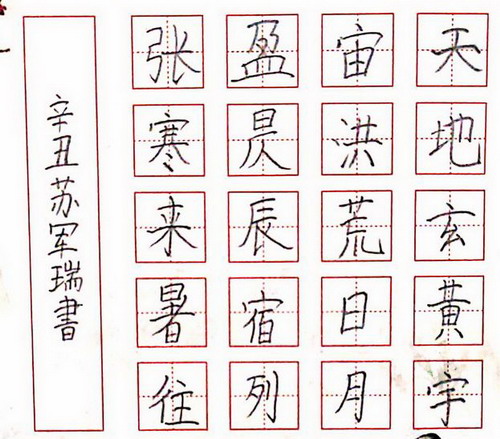 天地玄黃宇
宙洪荒日月
盈昃辰宿列
张寒来暑往
辛丑苏军瑞書